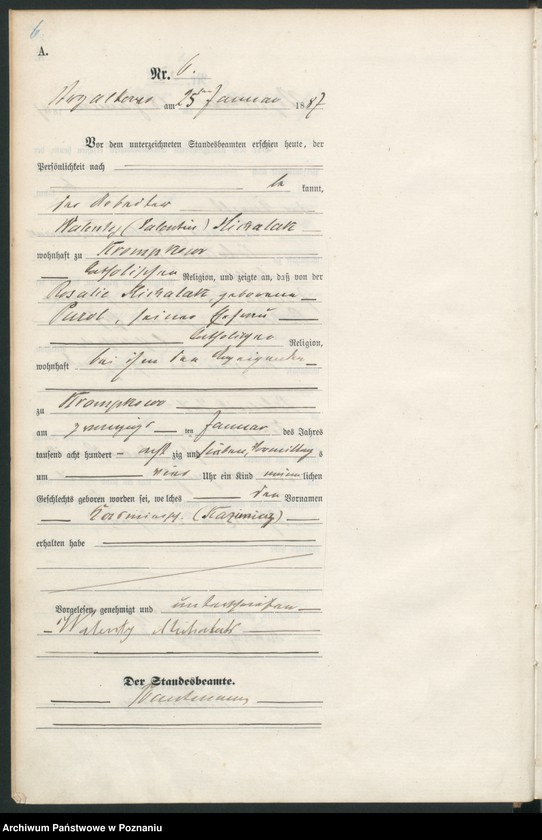 6
A.
Nr. 6.
am 25ten Januar 1887
Vor dem unterzeichneten Standesbeamten erschien heute, der
Persönlichkeit nach
be kannt,
der Arbeiter
Walenty (Valentin) Michalak
wohnhaft zu
katholischer Religion, und zeigte an, daß von der
Rosalie Michalak geborenen
seiner Ehefrau
katholischer Religion,
wohnhaft bei ihm dem Anzeigenden
zu
am zwanzigs ten Januar des Jahres
tausend acht hundert acht zig und sieben, Vormittag s
um vier Uhr ein Kind männ lichen
Geschlechts geboren worden sei, welches den Vornamen
(Kazimirz)
erhalten habe
Vorgelesen, genehmigt und unterschrieben
Walenty Michalak
Der Standesbeamte.
Archiwum Państwowe w Poznaniu